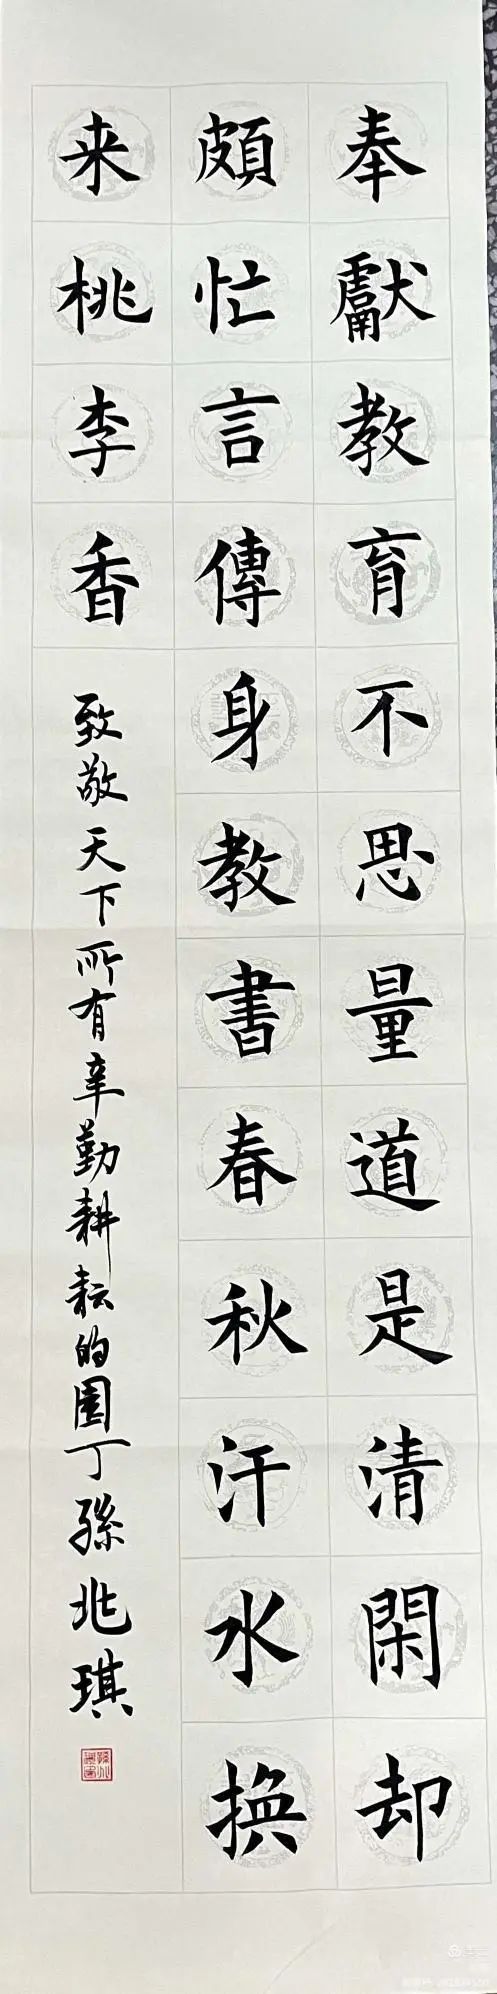 奉獻教育不思量道是清閑却
頗忙言傳身教書春秋汗水換
来桃李香
致敬天下所有辛勤耕耘的園丁孫兆琪